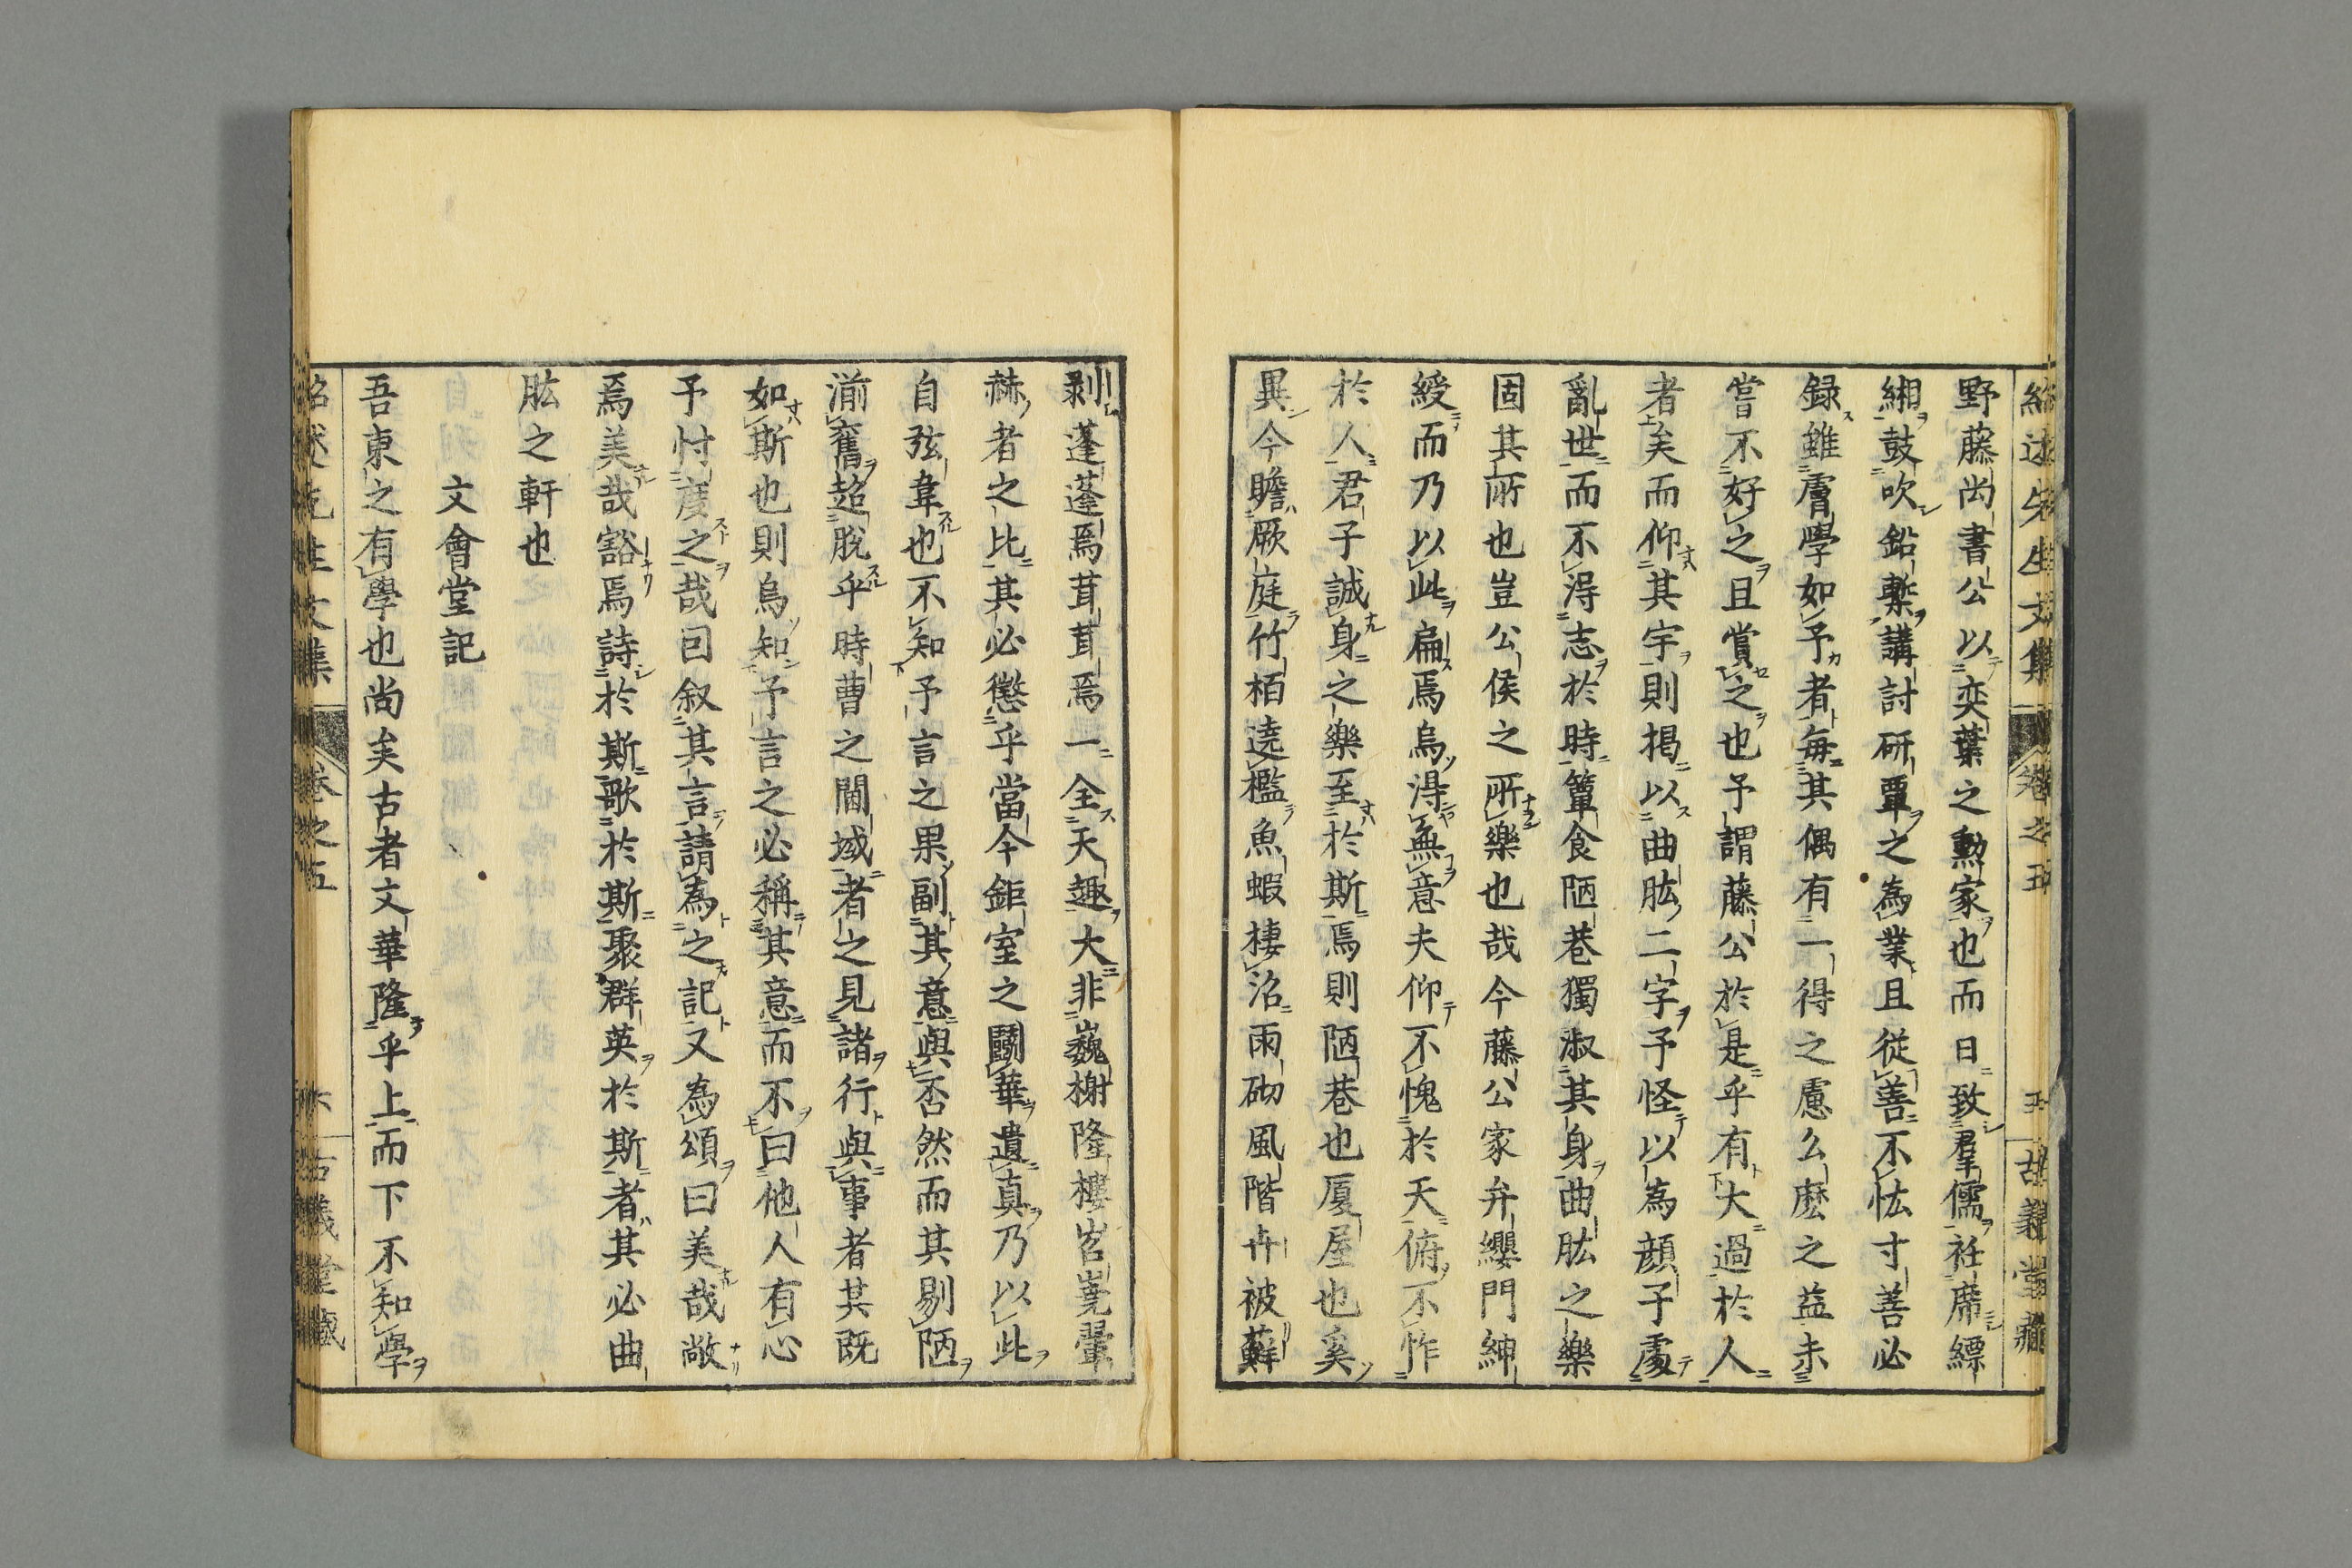 紹述先生文集 卷之五 五 古義堂藏
野藤尚書公以奕葉之勲家也而日致羣儒衽席縹
緗鼓吹鉛槧講討研覃之為業且従善不怯寸善必
録雖膚學如予者毎其偶有一得之慮么麽之益未
嘗不好之且賞之也予謂藤公於是乎有大過於人
者矣而仰其宇則掲以曲肱二字予怪以為顔子處
亂世而不淂志於時簞食陋巷獨淑其身曲肱之樂
固其所也豈公侯之所樂也哉今藤公家弁纓門紳
綬而乃以此扁焉烏淂無意夫仰不愧於天俯不怍
於人君子誠身之樂至於斯焉則陋巷也厦屋也奚
異今瞻厥庭竹栢遶檻魚蝦棲沼雨砌風階卉被蘚
剥蓬蓬焉茸茸焉一全天趣大非巍榭隆樓岧嶤翬
赫者之比其必懲乎當今鉅室之鬪華遺真乃以此
自弦韋也不知予言之果副其意與否然而其剔陋
湔舊超脱乎時曹之閫域者之見諸行與事者其既
如斯也則烏知予言之必稱其意而不曰他人有心
予忖度之哉囙叙其言請為之記又為頌曰美哉敞
焉美哉豁焉詩於斯歌於斯聚群英於斯者其必曲
肱之軒也
文會堂記
吾東之有學也尚矣古者文華隆乎上而下不知學
紹述先生文集 卷之五 六 古義堂藏